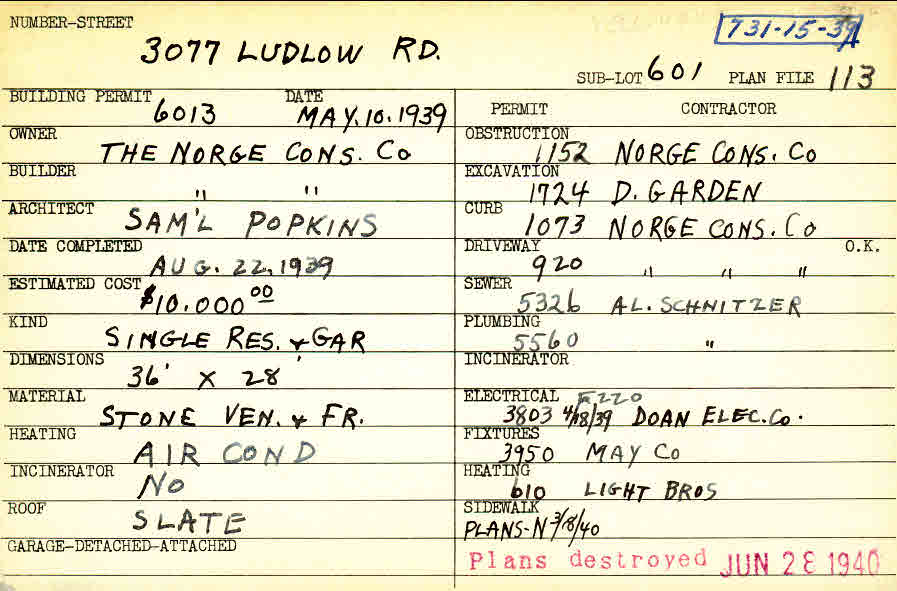 NUMBER-STREET
3077 LUDLOW RD.
731-15-39
SUB-LOT 601 PLAN FILE 113
BUILDING PERMIT DATE
6013 MAY. 10. 1939
OWNER
THE NORGE CONS. Co
BUILDER
" "
ARCHITECT
SAM'L POPKINS
DATE COMPLETED
AUG. 22, 1939
ESTIMATED COST
$10.000 00
KIND
SINGLE RES. & GAR
DIMENSIONS
36' X 28'
MATERIAL
STONE VEN. & FR.
HEATING
AIR COND
INCINERATOR
NO
ROOF
SLATE
GARAGE-DETACHED-ATTACHED
PERMIT CONTRACTOR
OBSTRUCTION
1152 NORGE CONS. Co
EXCAVATION
1724 D. GARDEN
CURB
1073 NORGE CONS. Co
DRIVEWAY O.K.
920 " " "
SEWER
5326 AL. SCHNITZER
PLUMBING
5560 "
INCINERATOR
ELECTRICAL
3803 4/18/39 DOAN ELEC. Co.
FIXTURES
3950 MAY Co
HEATING
610 LIGHT BROS
SIDEWALK
PLANS-N 3/18/40
Plans destroyed JUN 28 1940